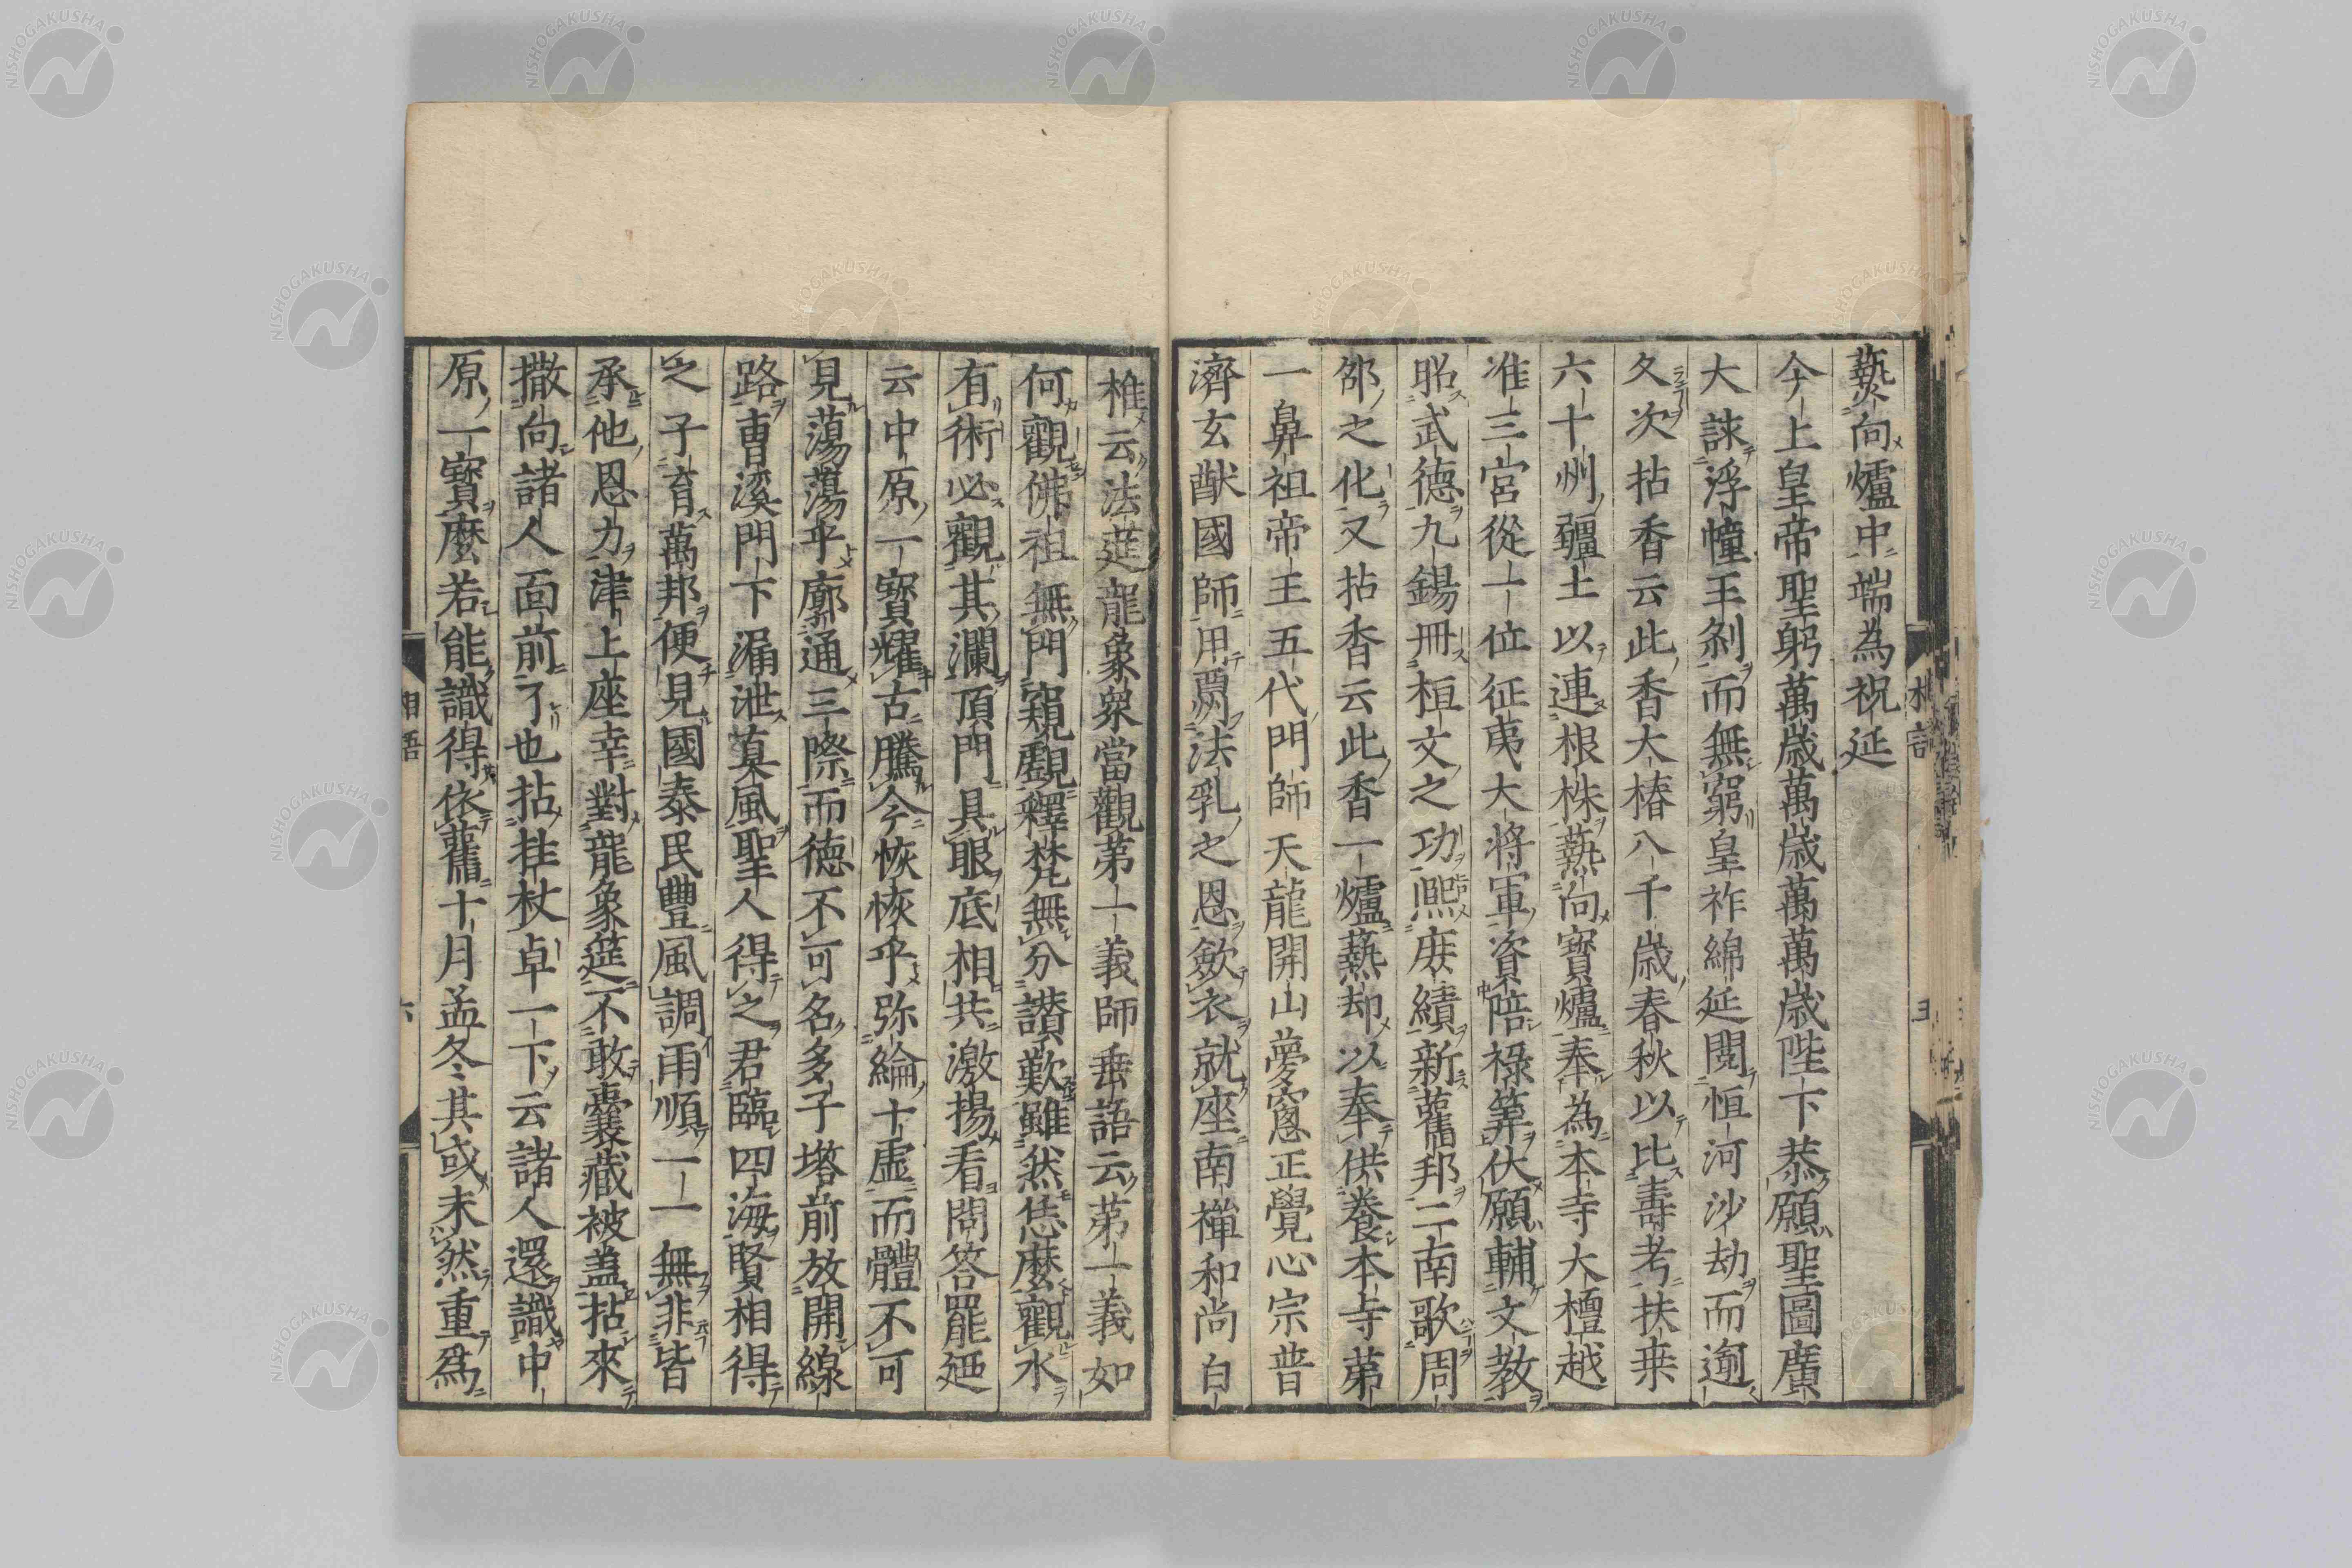 爇向爐中端為祝延
今上皇帝聖躬萬歳萬歳萬萬歳陛下恭願聖圖廣
大誄浮幢王剎而無窮皇祚綿延閱恒河沙劫而逾
久次拈香云此香大椿八千歳春秋以比壽考扶桒
六十州疆土以連根株爇向寶爐奉為本寺大檀越
准三宮從一位征夷大将軍資陪禄筭伏願輔文教
昭武德九錫冊桓文之功熙庶績新舊邦二南歌周
邵之化又拈香云此香一爐爇却以奉供養本寺第
一鼻祖帝王五代門師天龍開山夢窓正覺心宗普
濟玄猷國師用酬法乳之恩斂衣就座南禪和尚白
椎云法莚龍象衆當觀第一義師垂語云第一義如
何觀佛祖無門窺覷釋梵無分讃歎雖然恁麼觀水
有術必觀其瀾頂門具眼底相共激揚看問答罷廼
云中原一寳耀古騰今恢恢乎弥綸十虚而體不可
見蕩蕩乎廓通三際而德不可名多子塔前放開線
路曹溪門下漏泄真風聖人得之君臨四海賢相得
之子育萬邦便見國泰民豐風調雨順一一無非皆
承他恩力津上座幸對龍象筵不敢囊藏被盖拈來
撒向諸人面前了也拈拄杖卓一下云諸人還識中
原一寳麼若能識得依舊十月孟冬其或未然重為
相語
六